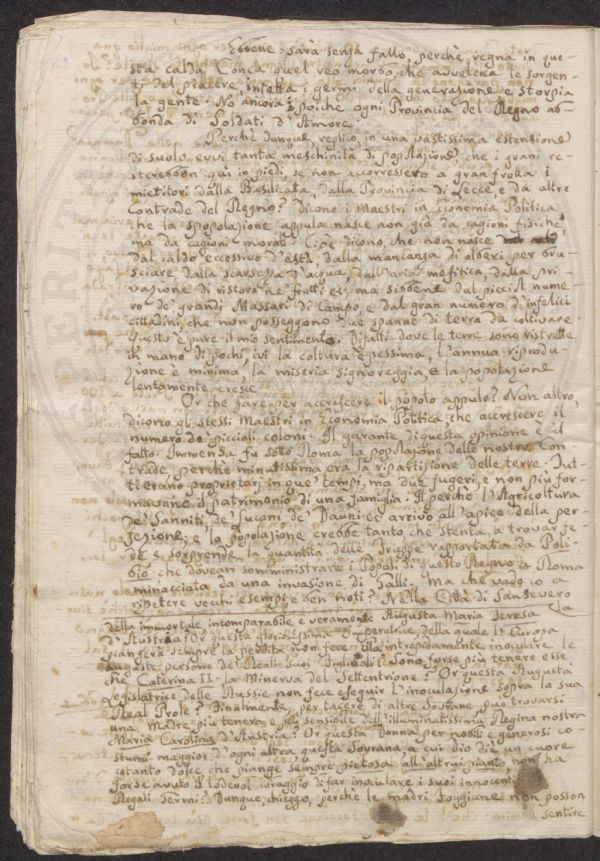 Ebbene: sarà senza fallo, perchè regna in que-
sta calda Conca quel reo morbo, che avvelena le sorgen-
ti del piacere, infetta i germi della generazione e storpia
la gente. No ancora; poichè ogni Provincia del Regno ab-
bonda di Soldati d'Amore.
Perchè dunque, replico, in una vastissima estensione
di suolo evvi tanta meschinità di popolazione, che i grani re-
sterebbon qui in piedi, se non accorressero a gran frotta i
mietitori dalla Basilicata, dalla Provincia di Lecce, e da altre
Contrade del Regno? Dicono i Maestri in Economia Politica
che la spopolazione appula nasce non già da cagioni fisiche,
ma da cagioni morali. Cioè dicono, che non nasce
dal caldo eccessivo d'està, dalla mancanza di alberi per bru-
sciare, dalla scarsezza d'acqua, dall'aria mefitica, dalla pri-
vazione di ristoro ne' frutti ec; ma sibbene dal picciol nume-
ro de' grandi Massari di Campo, e dal gran numero d'infelici
cittadini, che non posseggono due spanne di terra da coltivare.
Questo è pure il mio sentimento. Difatti dove le terre sono ristrette
in mano di pochi, ivi la coltura è pessima, l'annua riprodu-
zione è minima, la miseria signoreggia, e la popolazione
lentamente cresce.
Or che fare per accrescere il popolo appulo? Non altro,
dicono gli stessi Maestri in Economia Politica, che accrescere il
numero de' piccioli coloni. Il garante di questa opinione è il
fatto. Immensa fu sotto Roma la popolazione delle nostre Con-
trade, perchè minutissima era la ripartizione delle terre. Tut-
ti erano proprietarj in que' tempi, ma due jugeri, e non più for-
mavano il patrimonio di una famiglia. Il perchè l'Agricoltura
de' Sanniti, de' Lucani, de' Dauni ec arrivò all'apice della per-
fezione; e la popolazione crebbe tanto, che stenta a trovar fe-
de, e sorprende la quantità delle truppe rapportata da Poli-
bio, che dovean somministrare i Popoli di questo Regno a Roma
minacciata da una invasione di Galli. Ma che vado io a
ripetere vecchi esempi e ben noti? Nella Città di Sansevero
della immortale incomparabile e veramente Augusta Maria Teresa
d'Austria? Or questa gloriosissima Imperatrice, della quale l'Europa
piangerà sempre la perdita non fece Ella intrepidamente inoculare le
auguste persone de' Reali Suoi Figliuoli? Sono forse più tenere esse
che Caterina II. la Minerva del Settentrione? Or questa Augusta
Legislatrice delle Russie non fece eseguir l'inoculazione sopra la sua
Real Prole? Finalmente, per tacere di altre Sovrane, può trovarsi
una Madre più tenera, e più sensibile dell'illuminatissima Regina nostra
Maria Carolina d'Austria? Or questa Donna per nobili e generosi co-
stumi maggior d'ogni altra, questa Sovrana, a cui dio diè un cuore
cotanto dolce che piange sempre pietosa all'altrui pianto, non ha
forse avuto il lodevol coraggio di far inoculare i suoi innocenti
Regali Germi? Dunque, chieggo, perchè le madri Foggiane non posson
sentire